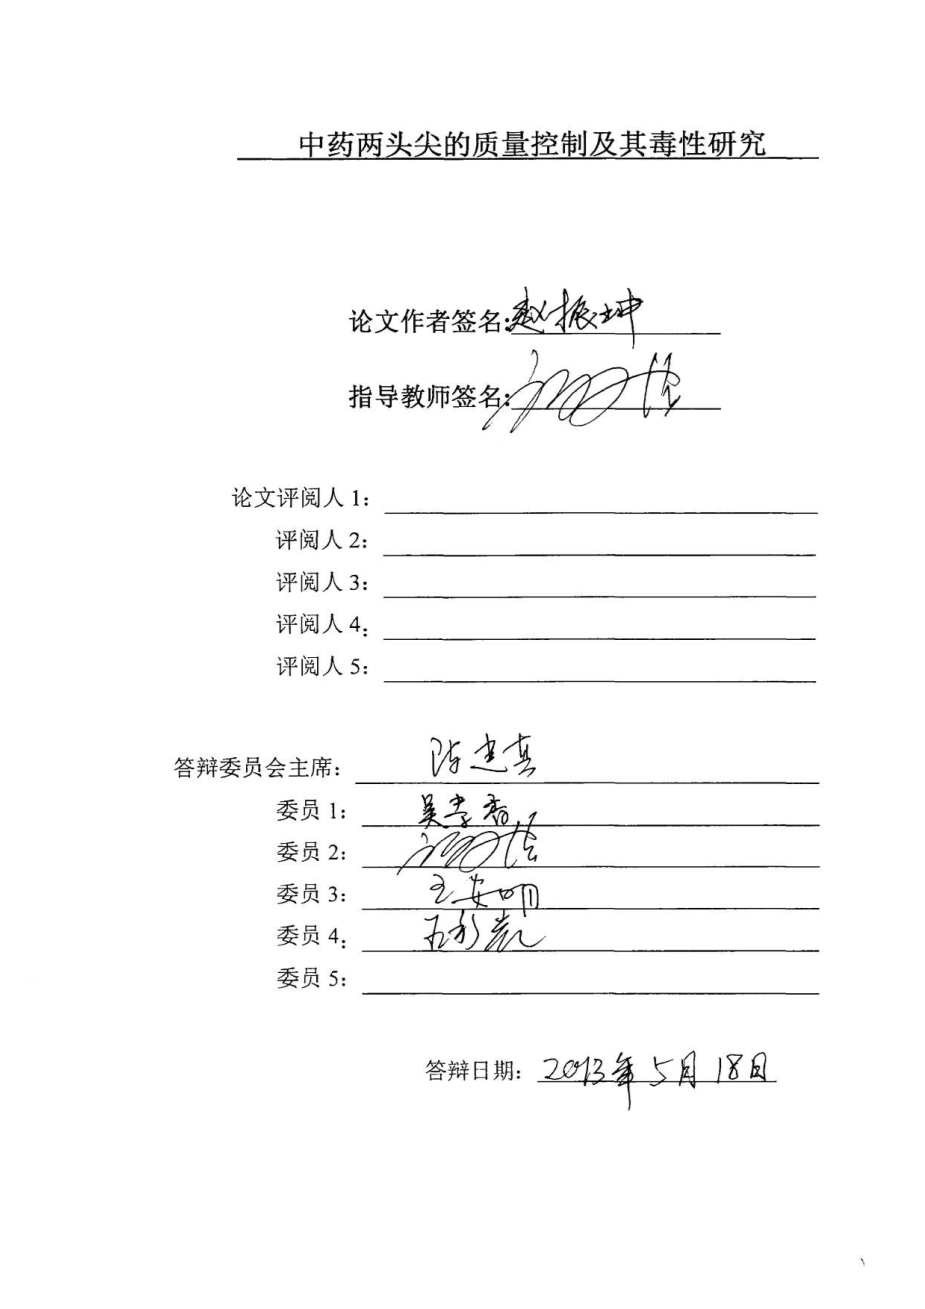 中药两头尖的质量控制及其毒性研究
论文作者签名:赵振坤
指导教师签名:
论文评阅人 1:
评阅人 2:
评阅人 3:
评阅人 4:
评阅人 5:
答辩委员会主席: 陈建真
委员 1: 吴孝香
委员 2:
委员 3: 王安明
委员 4:
委员 5:
答辩日期: 2013年5月18日